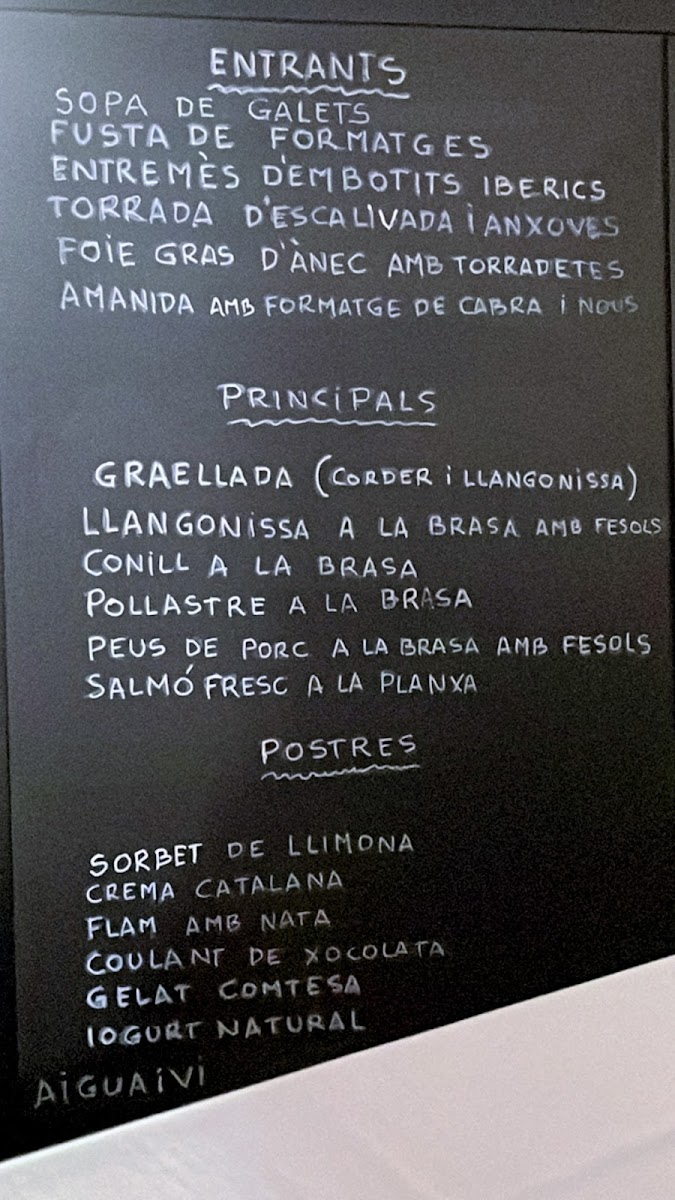 ENTRANTS
SOPA DE GALETS
FUSTA DE FORMATGES
ENTREMÈS D'EMBOTITS IBERICS
TORRADA D'ESCALIVADA i ANXOVES
FOIE GRAS D'ÀNEC AMB TORRADETES
AMANIDA AMB FORMATGE DE CABRA i NOUS
PRINCIPALS
GRAELLADA (CORDER i LLANGONISSA)
LLANGONISSA A LA BRASA AMB FESOLS
CONILL A LA BRASA
POLLASTRE A LA BRASA
PEUS DE PORC A LA BRASA AMB FESOLS
SALMÓ FRESC A LA PLANXA
POSTRES
SORBET DE LLIMONA
CREMA CATALANA
FLAM AMB NATA
COULANT DE XOCOLATA
GELAT COMTESA
IOGURT NATURAL
AIGUA i VI